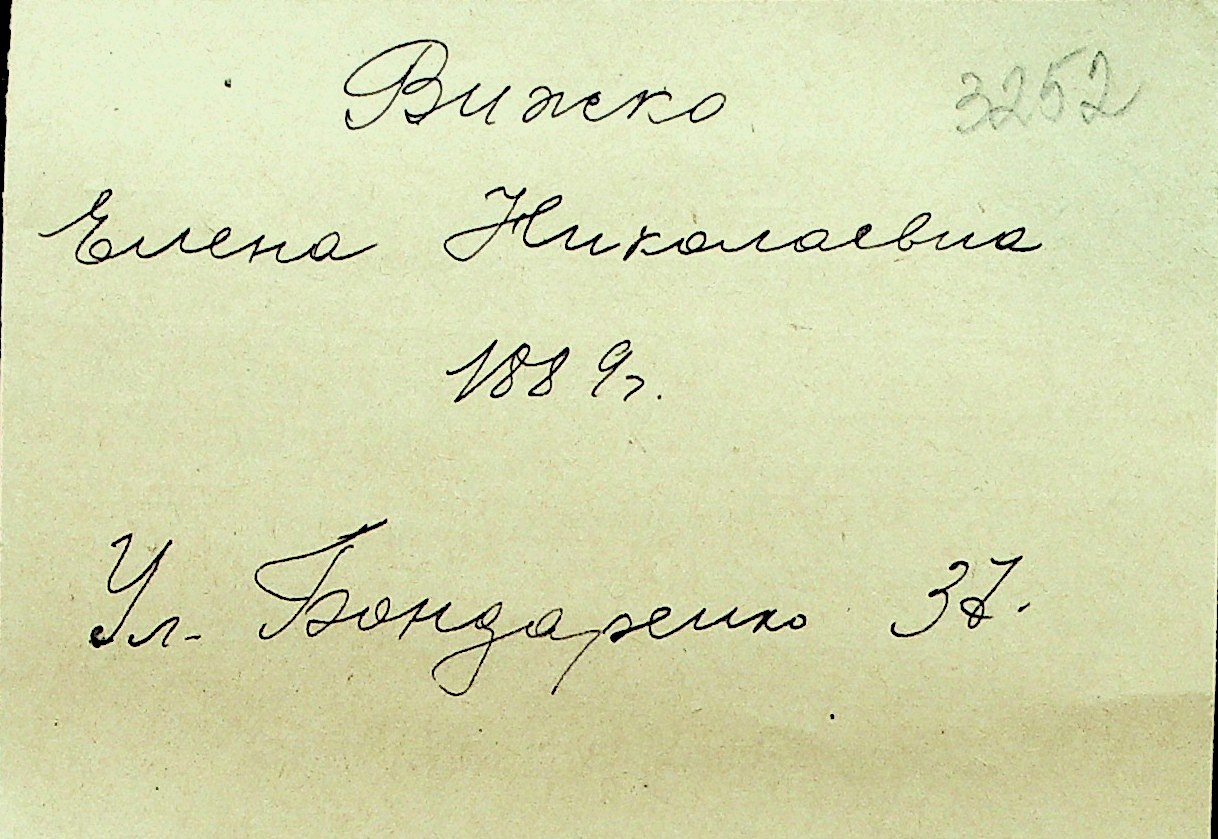 Вижко 3252
Елена Николаевна
1889г.
Ул. Бондаренко 37.